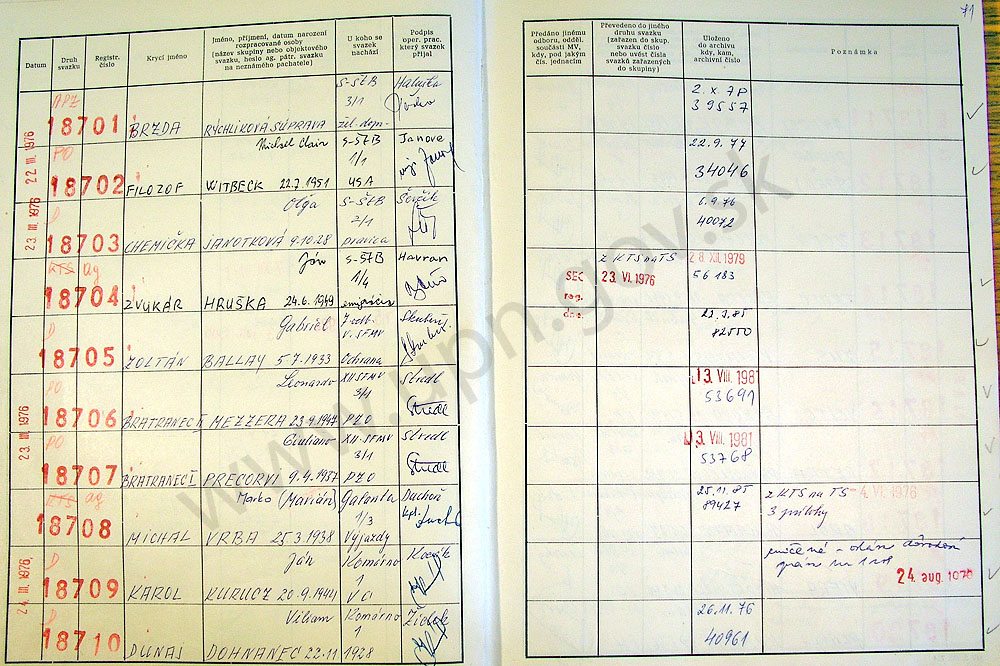 71
Datum
Druh svazku
Registr. číslo
Krycí jméno
Jméno, příjmení, datum narození
rozpracované osoby
(název skupiny nebo objektového
svazku, heslo ag. pátr. svazku
na neznámého pachatele)
U koho se
svazek
nachází
Podpis
oper. prac.
který svazek
přijal
Předáno jinému
odboru, odděl.
součásti MV,
kdy, pod jakým
čís. jednacím
Převedeno do jiného
druhu svazku
(zařazen do skup.
svazku číslo
nebo uvést čísla
svazků zařazených
do skupiny)
Uloženo
do archivu
kdy, kam,
archivní číslo
Poznámka
22 III. 1976
APZ
18701
BRZDA
RÝCHLIKOVÁ SÚPRAVA
S-ŠTB
3/1
žel. dop.
Haluška
2. X 79
39557
PO
18702
FILOZOF
Michael Clair
WITBECK 22.7.1951
S-ŠTB
1/1
USA
Janove
22.9.77
34046
23. III. 1976
D
18703
CHEMIČKA
Olga
JANOTKOVÁ 9.10.28
S-ŠTB
2/1
pravica
6.9.76
40072
KTS ag
18704
ZVUKÁR
Ján
HRUŠKA 24.6.1949
S-ŠTB
1/4
emigrácia
Havran
SEC
reg.
z KTS na TS
23. VI. 1976
28. XII. 1979
56183
D
18705
ZOLTÁN
Gabriel
BALLAY 5.7.1933
V. SFMV
Ochrana
82550
23. III. 1976
PO
18706
BRATRANEC II
Leonardo
MEZZERA 23.9.1947
XII. SFMV
3/1
PZO
Stredl
13. VIII. 1981
53691
PO
18707
BRATRANEC I
Giuliano
PRECORVI 9.4.1957
XII. SFMV
3/1
PZO
Stredl
13. VIII. 1981
53768
KTS ag
18708
MICHAL
Marko (Marián)
VRBA 25.3.1938
Galanta
1/3
Výjazdy
Duchoň
kpt.
25.11.85
89427
z KTS na TS - 4. VI. 1976
3 prílohy
24. III. 1976
D
18709
KAROL
Ján
KURUCZ 20.9.1944
Komárno
1
VCI
24. aug. 1976
D
18710
DUNAJ
Viliam
DOHNANEC 22.11.1928
Komárno
1
26.11.76
40961
www.upn.gov.sk